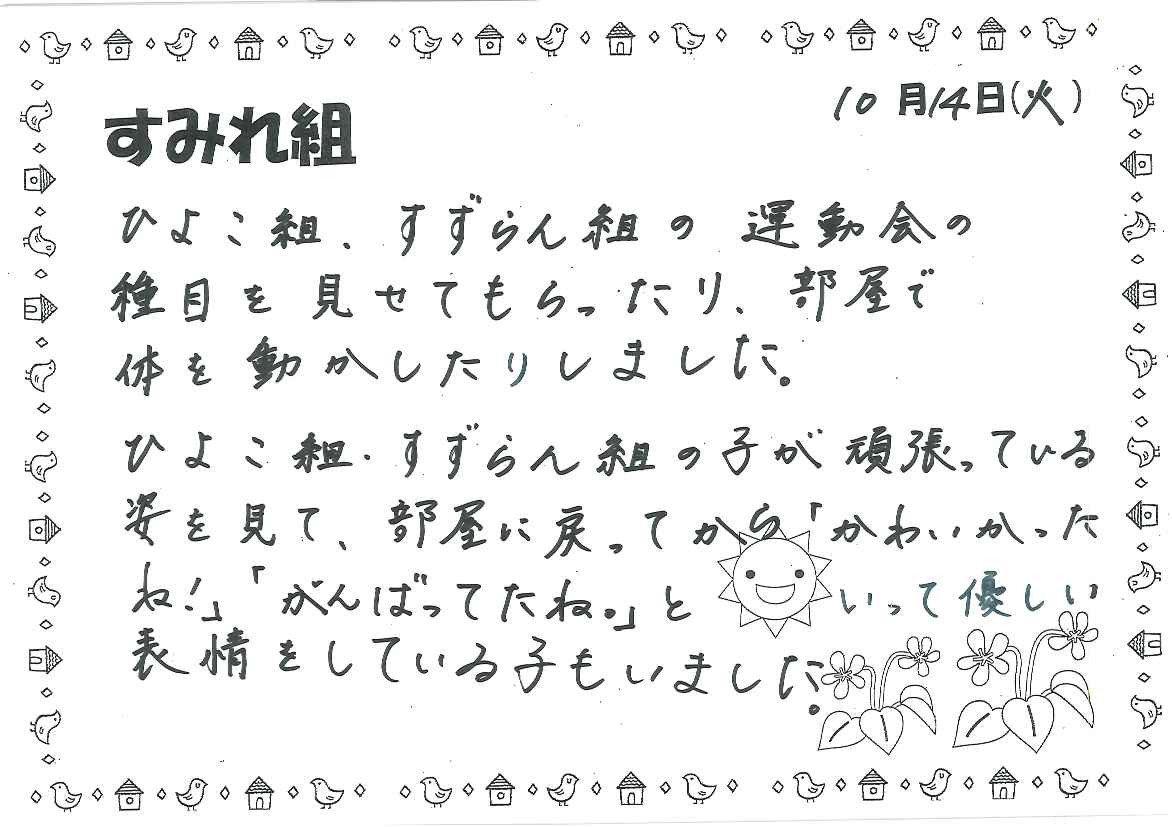 10月14日(火)
すみれ組
ひよこ組、すずらん組の運動会の
種目を見せてもらったり、部屋で
体を動かしたりしました。
ひよこ組・すずらん組の子が頑張っている
姿を見て、部屋に戻ってから「かわいかった
ね!」「がんばってたね。」といって優しい
表情をしている子もいました。